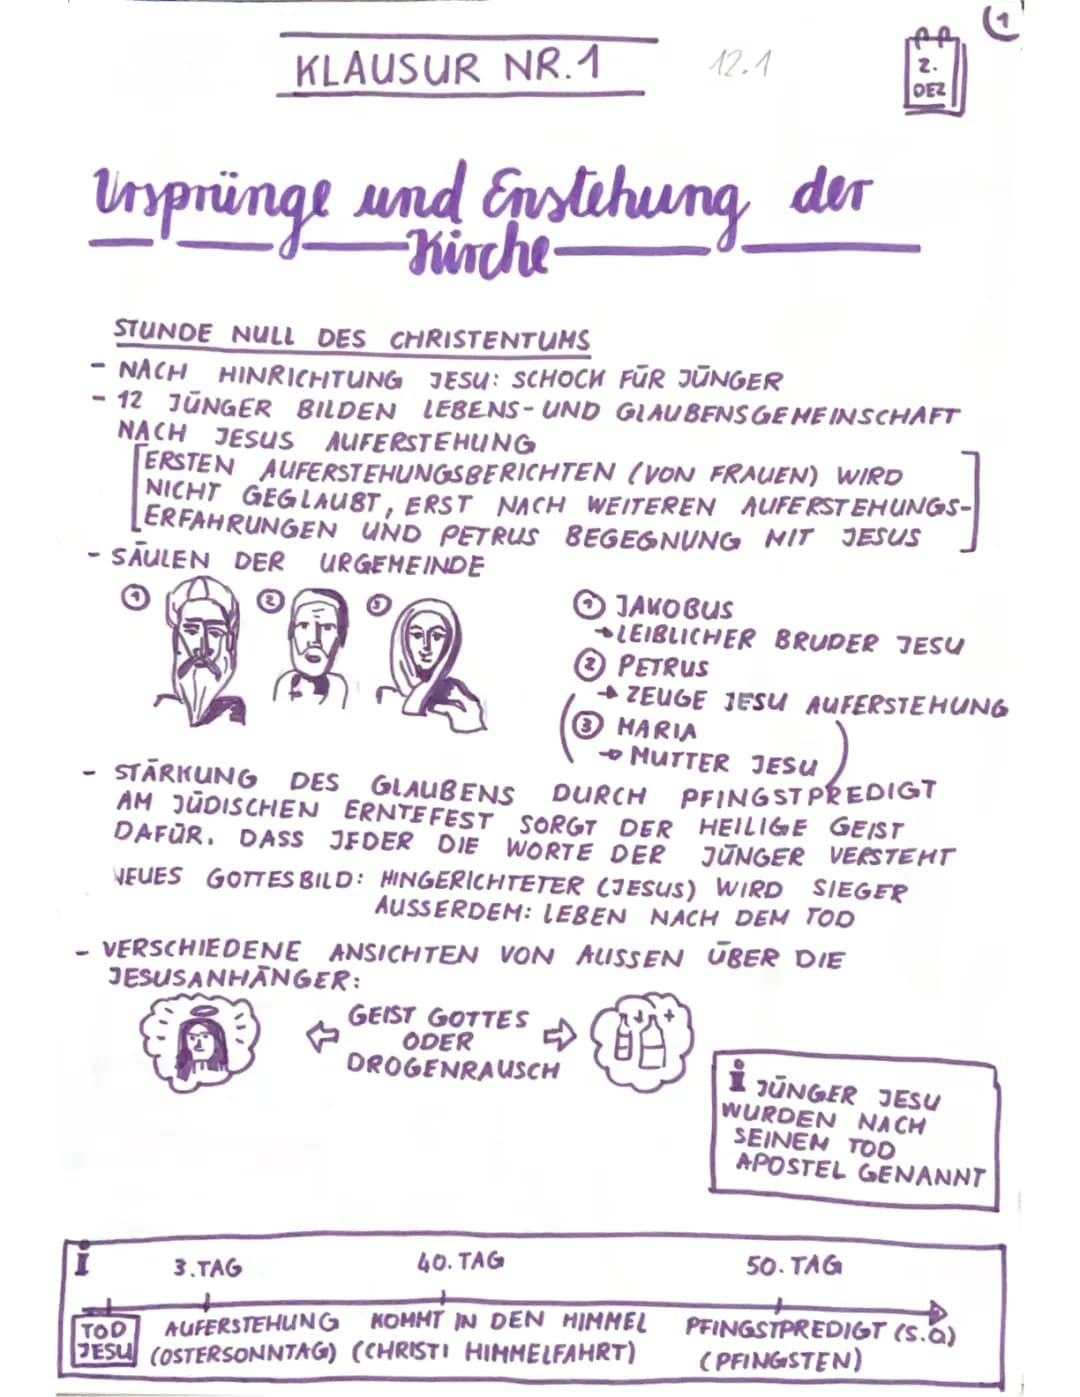 (1
KLAUSUR NR.1
12.1
2.
DEZ
Ursprünge und Enstehung der
Kirche
STUNDE NULL DES CHRISTENTUMS
- NACH HINRICHTUNG JESU: SCHOCK FÜR JÜNGER
- 12 JÜNGER BILDEN LEBENS- UND GLAUBENSGEMEINSCHAFT
NACH JESUS AUFERSTEHUNG
[ERSTEN AUFERSTEHUNGSBERICHTEN (VON FRAUEN) WIRD
NICHT GEGLAUBT, ERST NACH WEITEREN AUFERSTEHUNGS-
ERFAHRUNGEN UND PETRUS BEGEGNUNG MIT JESUS]
- SÄULEN DER URGEMEINDE
① ② ③
① JAKOBUS
→ LEIBLICHER BRUDER JESU
② PETRUS
→ ZEUGE JESU AUFERSTEHUNG
(③ MARIA
→ MUTTER JESU)
- STÄRKUNG DES GLAUBENS DURCH PFINGSTPREDIGT
AM JÜDISCHEN ERNTEFEST SORGT DER HEILIGE GEIST
DAFÜR, DASS JEDER DIE WORTE DER JÜNGER VERSTEHT
NEUES GOTTESBILD: HINGERICHTETER (JESUS) WIRD SIEGER
AUSSERDEM: LEBEN NACH DEM TOD
- VERSCHIEDENE ANSICHTEN VON AUSSEN ÜBER DIE
JESUSANHÄNGER:
GEIST GOTTES
ODER
DROGENRAUSCH
i JÜNGER JESU
WURDEN NACH
SEINEM TOD
APOSTEL GENANNT
i 3. TAG 40. TAG 50. TAG
TOD AUFERSTEHUNG KOMMT IN DEN HIMMEL PFINGSTPREDIGT (S.O)
JESU (OSTERSONNTAG) (CHRISTI HIMMELFAHRT) (PFINGSTEN)